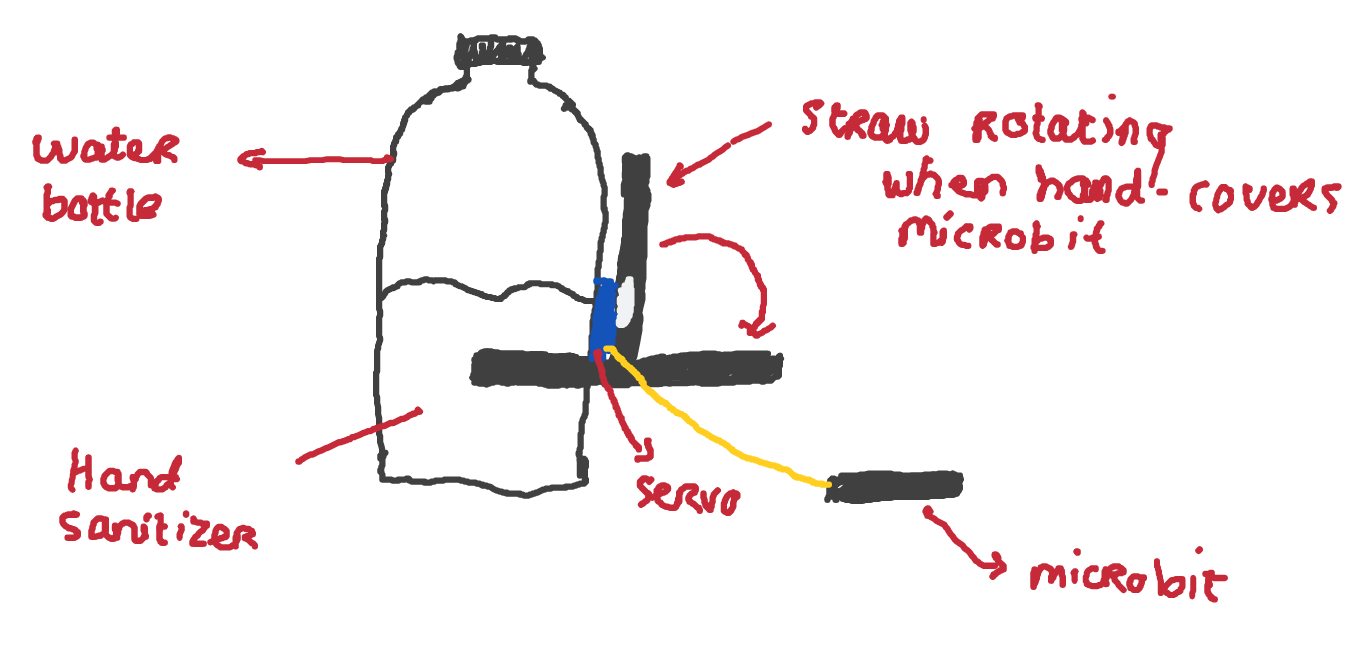 water
bottle
straw rotating
when hand- covers
microbit
Hand
sanitizer
servo
microbit